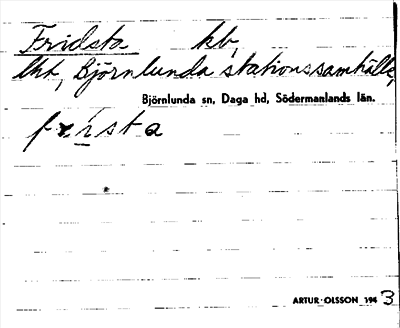 Fridsta kb,
lht, Björnlunda stationssamhälle,
Björnlunda sn, Daga hd, Södermanlands län.
frista
ARTUR OLSSON 1943